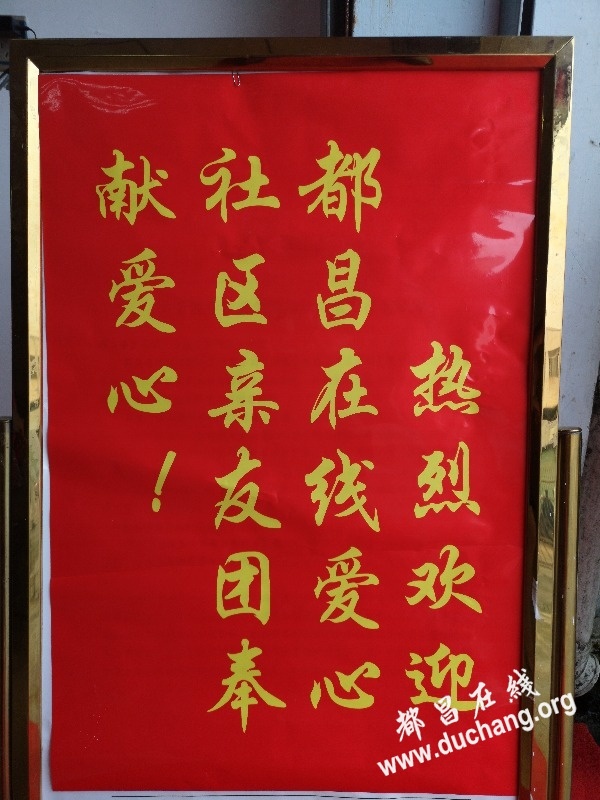 热烈欢迎
都昌在线爱心
社区亲友团奉
献爱心！
都昌在线
www.duchang.org